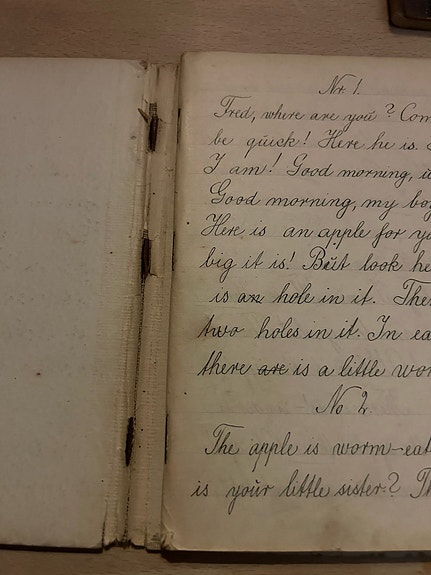 Nr. 1.
Fred, where are yoŭ? Com
be qŭick! Here he is.
I am! Good morning,
Good morning, my boy
Here is an apple for yo
big it is! Bŭt look he
is an hole in it. The
two holes in it. In ea
there are is a little wor
No 2.
The apple is worm-eat
is yoŭr little sister? Th